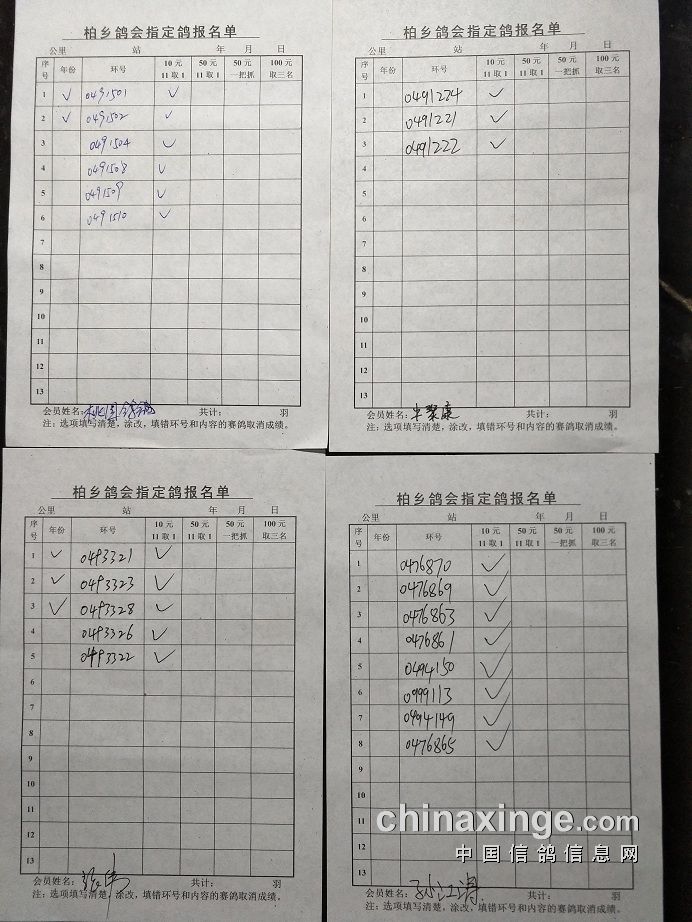 柏乡鸽会指定鸽报名单
公里 站 年 月 日
序号 年份 环号 10元 11取1 50元 11取1 50元 一把抓 100元 取三名
1 ✓ 0491501 ✓
2 ✓ 0491502 ✓
3 0491504 ✓
4 0491508 ✓
5 0491509 ✓
6 0491510 ✓
7
8
9
10
11
12
13
会员姓名: 共计: 羽
注:选项填写清楚,涂改,填错环号和内容的赛鸽取消成绩。
柏乡鸽会指定鸽报名单
公里 站 年 月 日
序号 年份 环号 10元 11取1 50元 11取1 50元 一把抓 100元 取三名
1 0491224 ✓
2 0491221 ✓
3 0491222 ✓
4
5
6
7
8
9
10
11
12
13
会员姓名: 共计: 羽
注:选项填写清楚,涂改,填错环号和内容的赛鸽取消成绩。
柏乡鸽会指定鸽报名单
公里 站 年 月 日
序号 年份 环号 10元 11取1 50元 11取1 50元 一把抓 100元 取三名
1 ✓ 0493321 ✓
2 ✓ 0493323 ✓
3 ✓ 0493328 ✓
4 0493326 ✓
5 0493322 ✓
6
7
8
9
10
11
12
13
会员姓名: 共计: 羽
注:选项填写清楚,涂改,填错环号和内容的赛鸽取消成绩。
柏乡鸽会指定鸽报名单
公里 站 年 月 日
序号 年份 环号 10元 11取1 50元 11取1 50元 一把抓 100元 取三名
1 0476870 ✓
2 0476869 ✓
3 0476863 ✓
4 0476861 ✓
5 0494150 ✓
6 0999113 ✓
7 0494149 ✓
8 0476865 ✓
9
10
11
12
13
会员姓名: 孙江涛 共计: 羽
注:选项填写清楚,涂改,填错环号和内容的赛鸽取消成绩。
chinaxinge.com
中国信鸽信息网